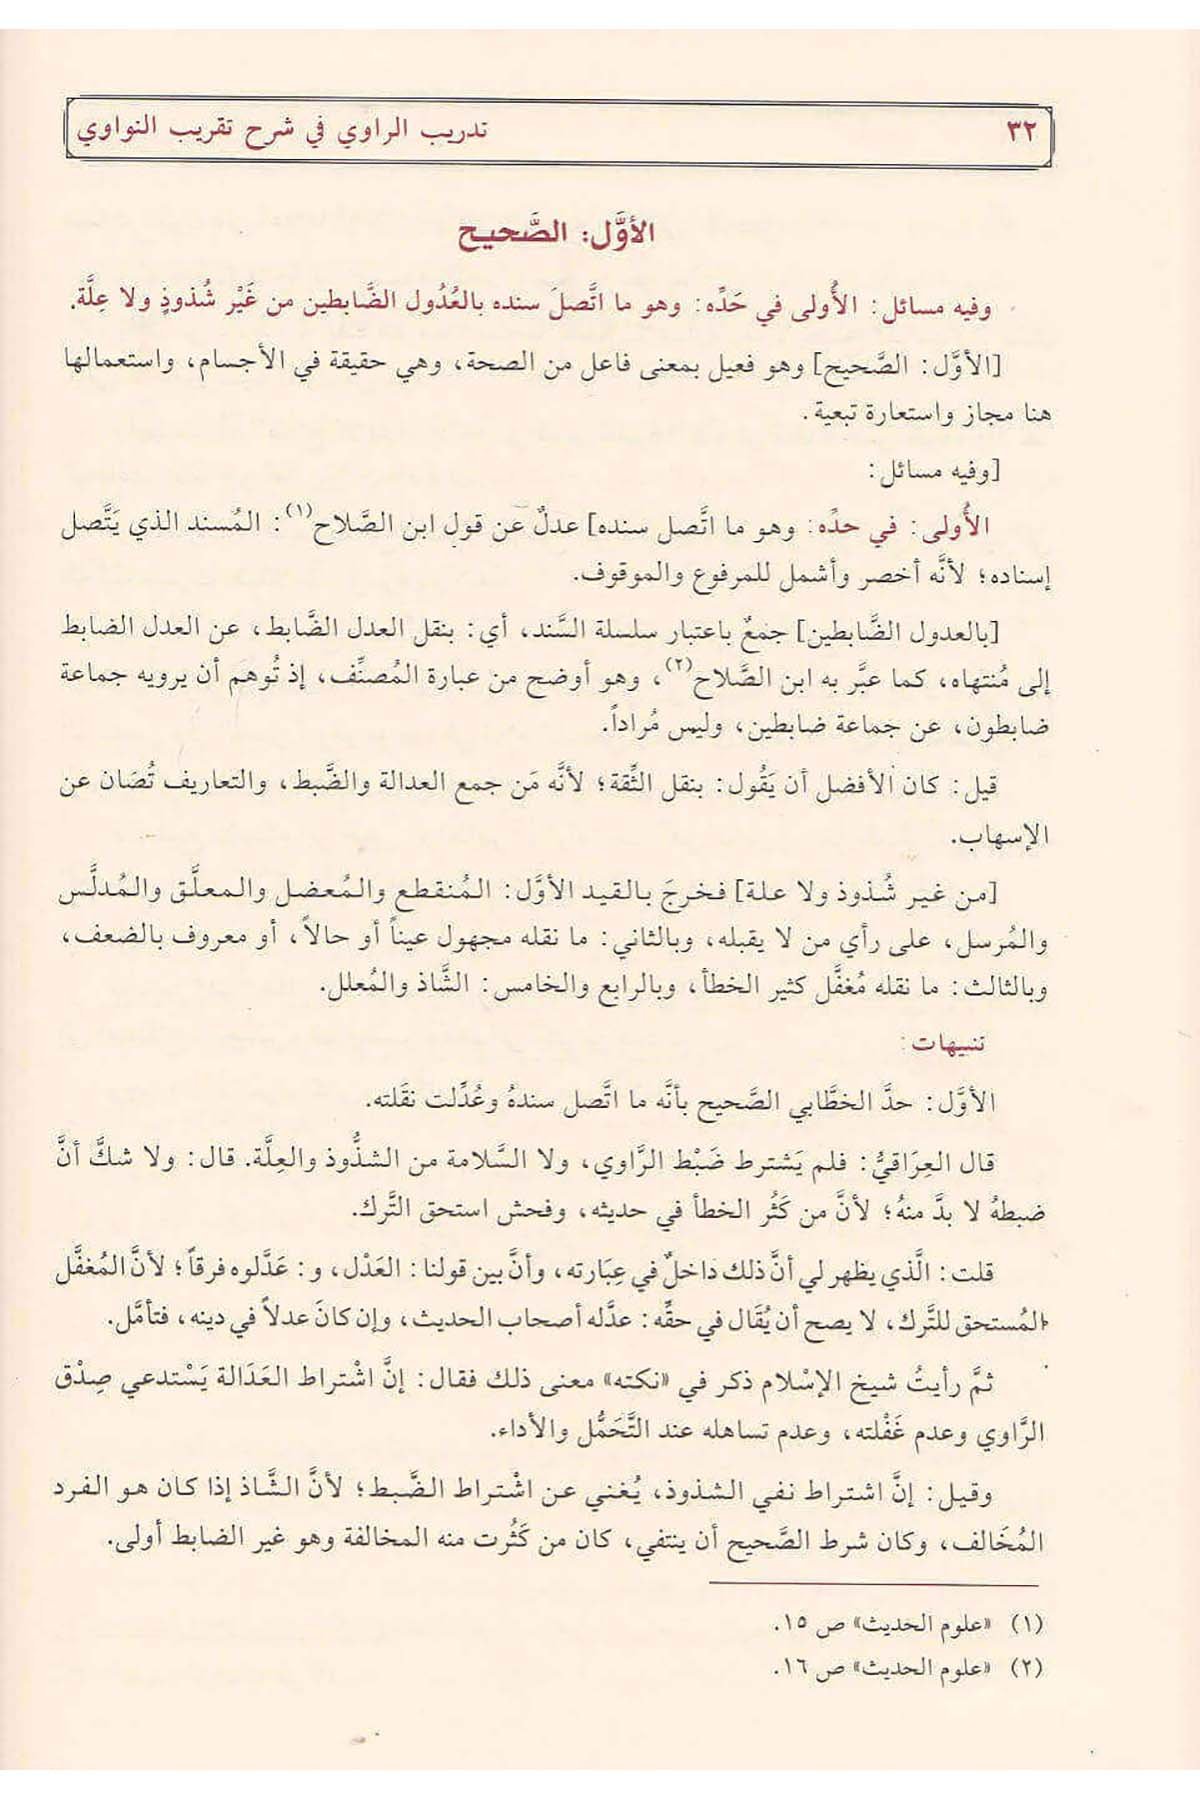 ٣٢
تدريب الراوي في شرح تقريب النواوي
الأوَّل: الصَّحيح
وفيه مسائل: الأُولى في حَدِّه: وهو ما اتَّصلَ سنده بالعُدُول الضَّابطين من غَيْر شُذوذٍ ولا عِلَّة.
[الأوَّل: الصَّحيح] وهو فعيل بمعنى فاعل من الصحة، وهي حقيقة في الأجسام، واستعمالها
هنا مجاز واستعارة تبعية.
[وفيه مسائل:
الأُولى: في حدِّه: وهو ما اتَّصل سنده] عدلٌ عن قول ابن الصَّلاح(١): المُسند الذي يَتَّصل
إسناده؛ لأنَّه أخصر وأشمل للمرفوع والموقوف.
[بالعدول الضَّابطين] جمعٌ باعتبار سلسلة السَّند، أي: بنقل العدل الضَّابط، عن العدل الضابط
إلى مُنتهاه، كما عبَّر به ابن الصَّلاح(٢)، وهو أوضح من عبارة المُصنِّف، إذ تُوهم أن يرويه جماعة
ضابطون، عن جماعة ضابطين، وليس مُراداً.
قيل: كان الأفضل أن يَقُول: بنقل الثِّقة؛ لأنَّه مَن جمع العدالة والضَّبط، والتعاريف تُصَان عن
الإسهاب.
[من غير شُذوذ ولا علة] فخرجَ بالقيد الأوَّل: المُنقطع والمُعضل والمعلَّق والمُدلَّس
والمُرسل، على رأي من لا يقبله، وبالثاني: ما نقله مجهول عيناً أو حالاً، أو معروف بالضعف،
وبالثالث: ما نقله مُغفَّل كثير الخطأ، وبالرابع والخامس: الشَّاذ والمُعلل.
تنبيهات:
الأوَّل: حدَّ الخطَّابي الصَّحيح بأنَّه ما اتَّصل سندهُ وعُدِّلت نقَلته.
قال العِرَاقيُّ: فلم يَشترط ضَبْط الرَّاوي، ولا السَّلامة من الشذُّوذ والعِلَّة. قال: ولا شكَّ أنَّ
ضبطهُ لا بدَّ منهُ؛ لأنَّ من كَثُر الخطأ في حديثه، وفحش استحق التَّرك.
قلت: الَّذي يظهر لي أنَّ ذلك دَاخلٌ في عِبَارته، وأنَّ بين قولنا: العَدْل، و: عَدَّلوه فرقاً؛ لأنَّ المُغفَّل
المُستحق للتَّرك، لا يصح أن يُقَال في حقِّه: عدَّله أصحاب الحديث، وإن كانَ عدلاً في دينه، فتأمَّل.
ثمَّ رأيتُ شيخ الإسْلام ذكر في «نكته» معنى ذلك فقال: إنَّ اشْتراط العَدَالة يَسْتدعي صِدْق
الرَّاوي وعدم غَفْلته، وعدم تساهله عند التَّحَمُّل والأداء.
وقيل: إنَّ اشتراط نفي الشذوذ، يُغني عن اشْتراط الضَّبط؛ لأنَّ الشَّاذ إذا كان هو الفرد
المُخَالف، وكان شرط الصَّحيح أن ينتفي، كان من كَثُرت منه المخالفة وهو غير الضابط أولى.
(١) «علوم الحديث» ص ١٥.
(٢) «علوم الحديث» ص ١٦.